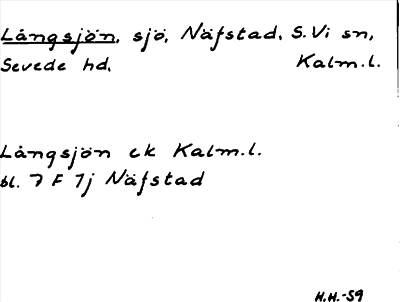 Långsjön, sjö, Näfstad, S. Vi sn,
Sevede hd, Kalm.l.
Långsjön ek Kalm.l.
bl. 7 F 7j Näfstad
H.H.-59